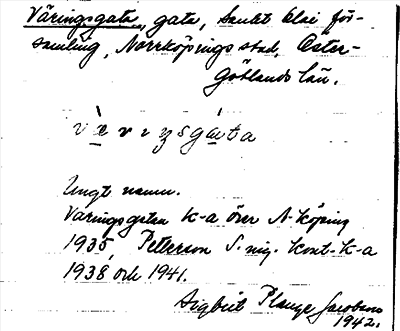 Väringsgatan, gata, Sankt Olai för-
samling, Norrköpings stad, Öster-
götlands län.
Ungt namn.
Väringsgatan k-a över N-köping
1935, Peterson S. nig. kont-k-a
1938 och 1941.
Sigbrit Plange Jacobson
1942.